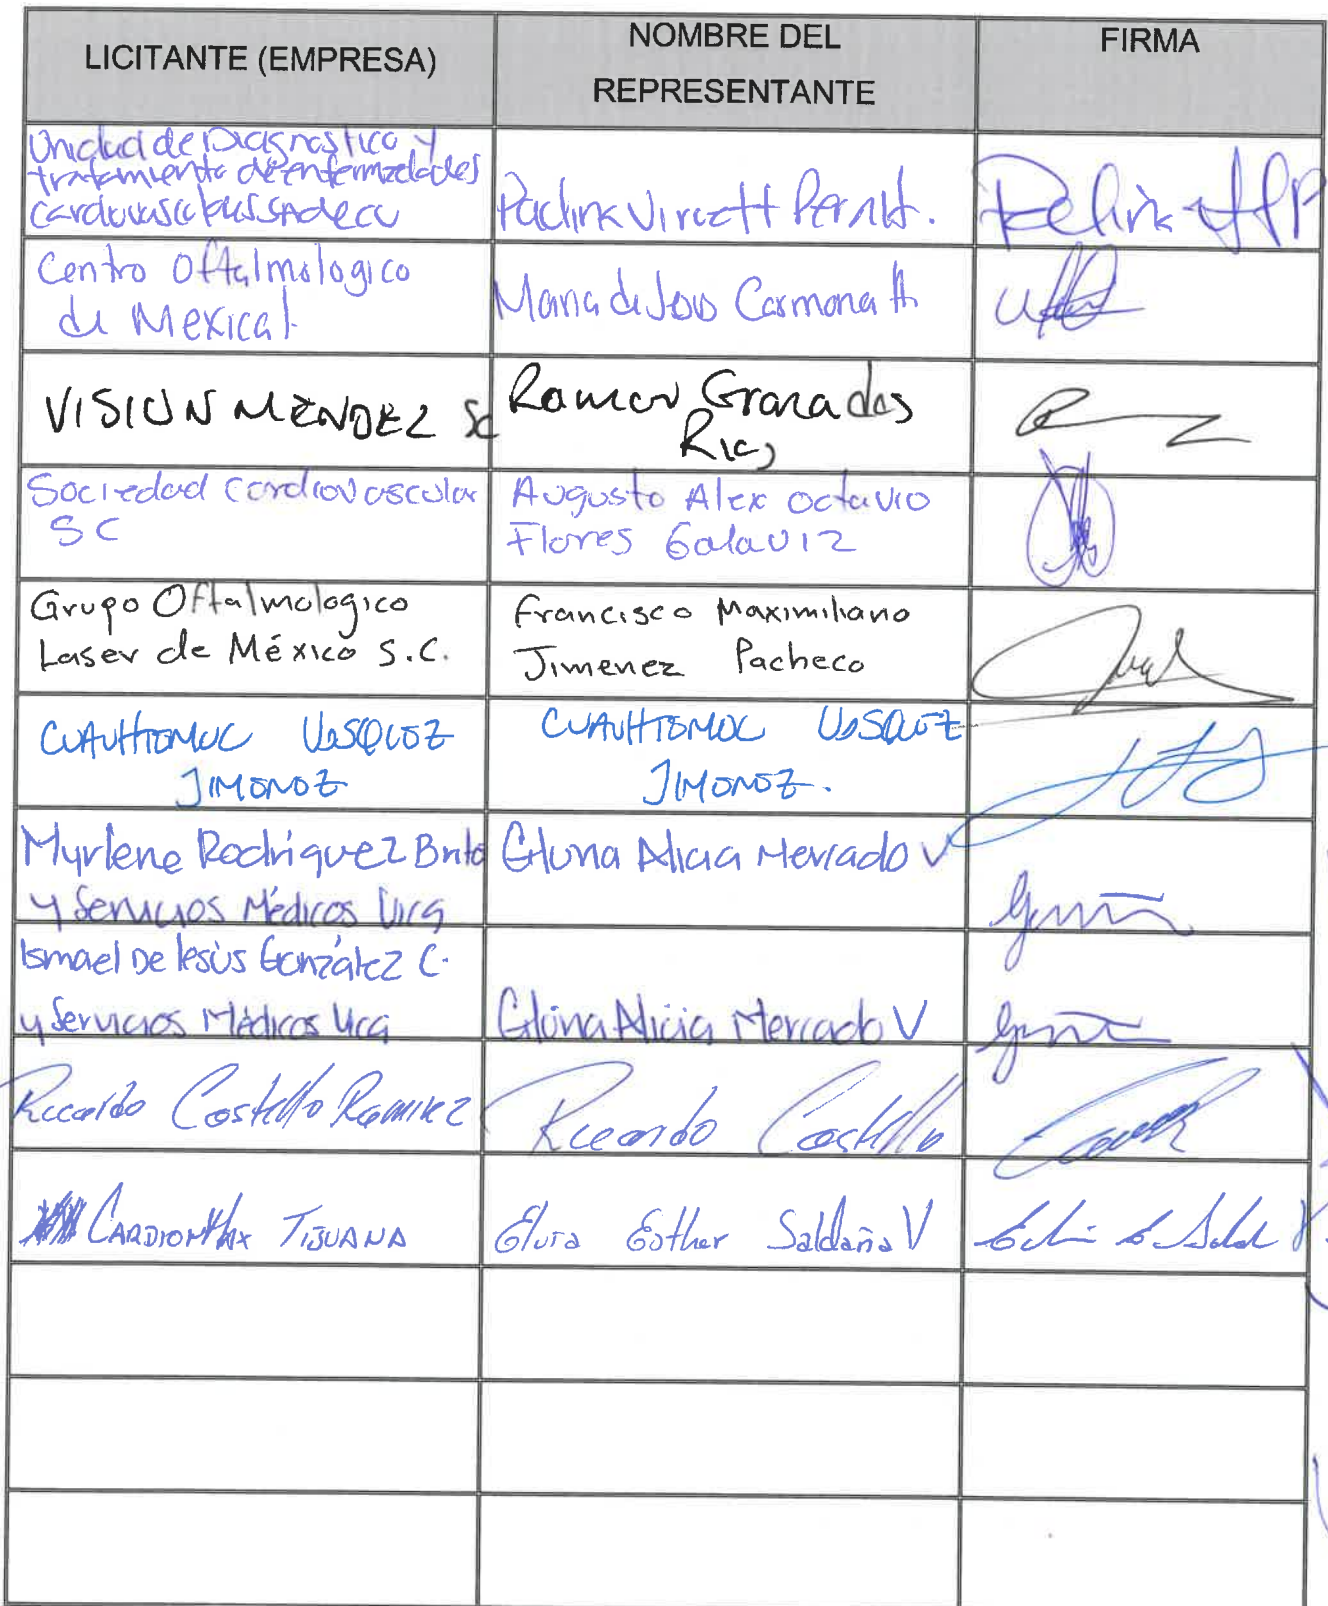 LICITANTE (EMPRESA)
NOMBRE DEL
REPRESENTANTE
FIRMA
Unidad de Diagnostico y
tratamiento de enfermedades
cardiovasculares
Centro Oftalmologico
de Mexicali
Maria de Jesus Carmona H.
VISION MENDEZ SC
Ramon Granados
Rios
Sociedad Cardiovascular
SC
Augusto Alex Octavio
Flores Galaviz
Grupo Oftalmologico
Laser de México S.C.
Francisco Maximiliano
Jimenez Pacheco
CUAUHTEMOC VASQUEZ
JIMENEZ
CUAUHTEMOC VASQUEZ
JIMENEZ.
Myrlene Rodríguez Brito
y Servicios Médicos Vica
Gloria Alicia Mercado V
Ismael De Jesús González C.
y Servicios Médicos Vica
Gloria Alicia Mercado V
Ricardo Castello Ramirez
Ricardo Castello
CARDIOMAX TIJUANA
Elvira Esther Saldaña V